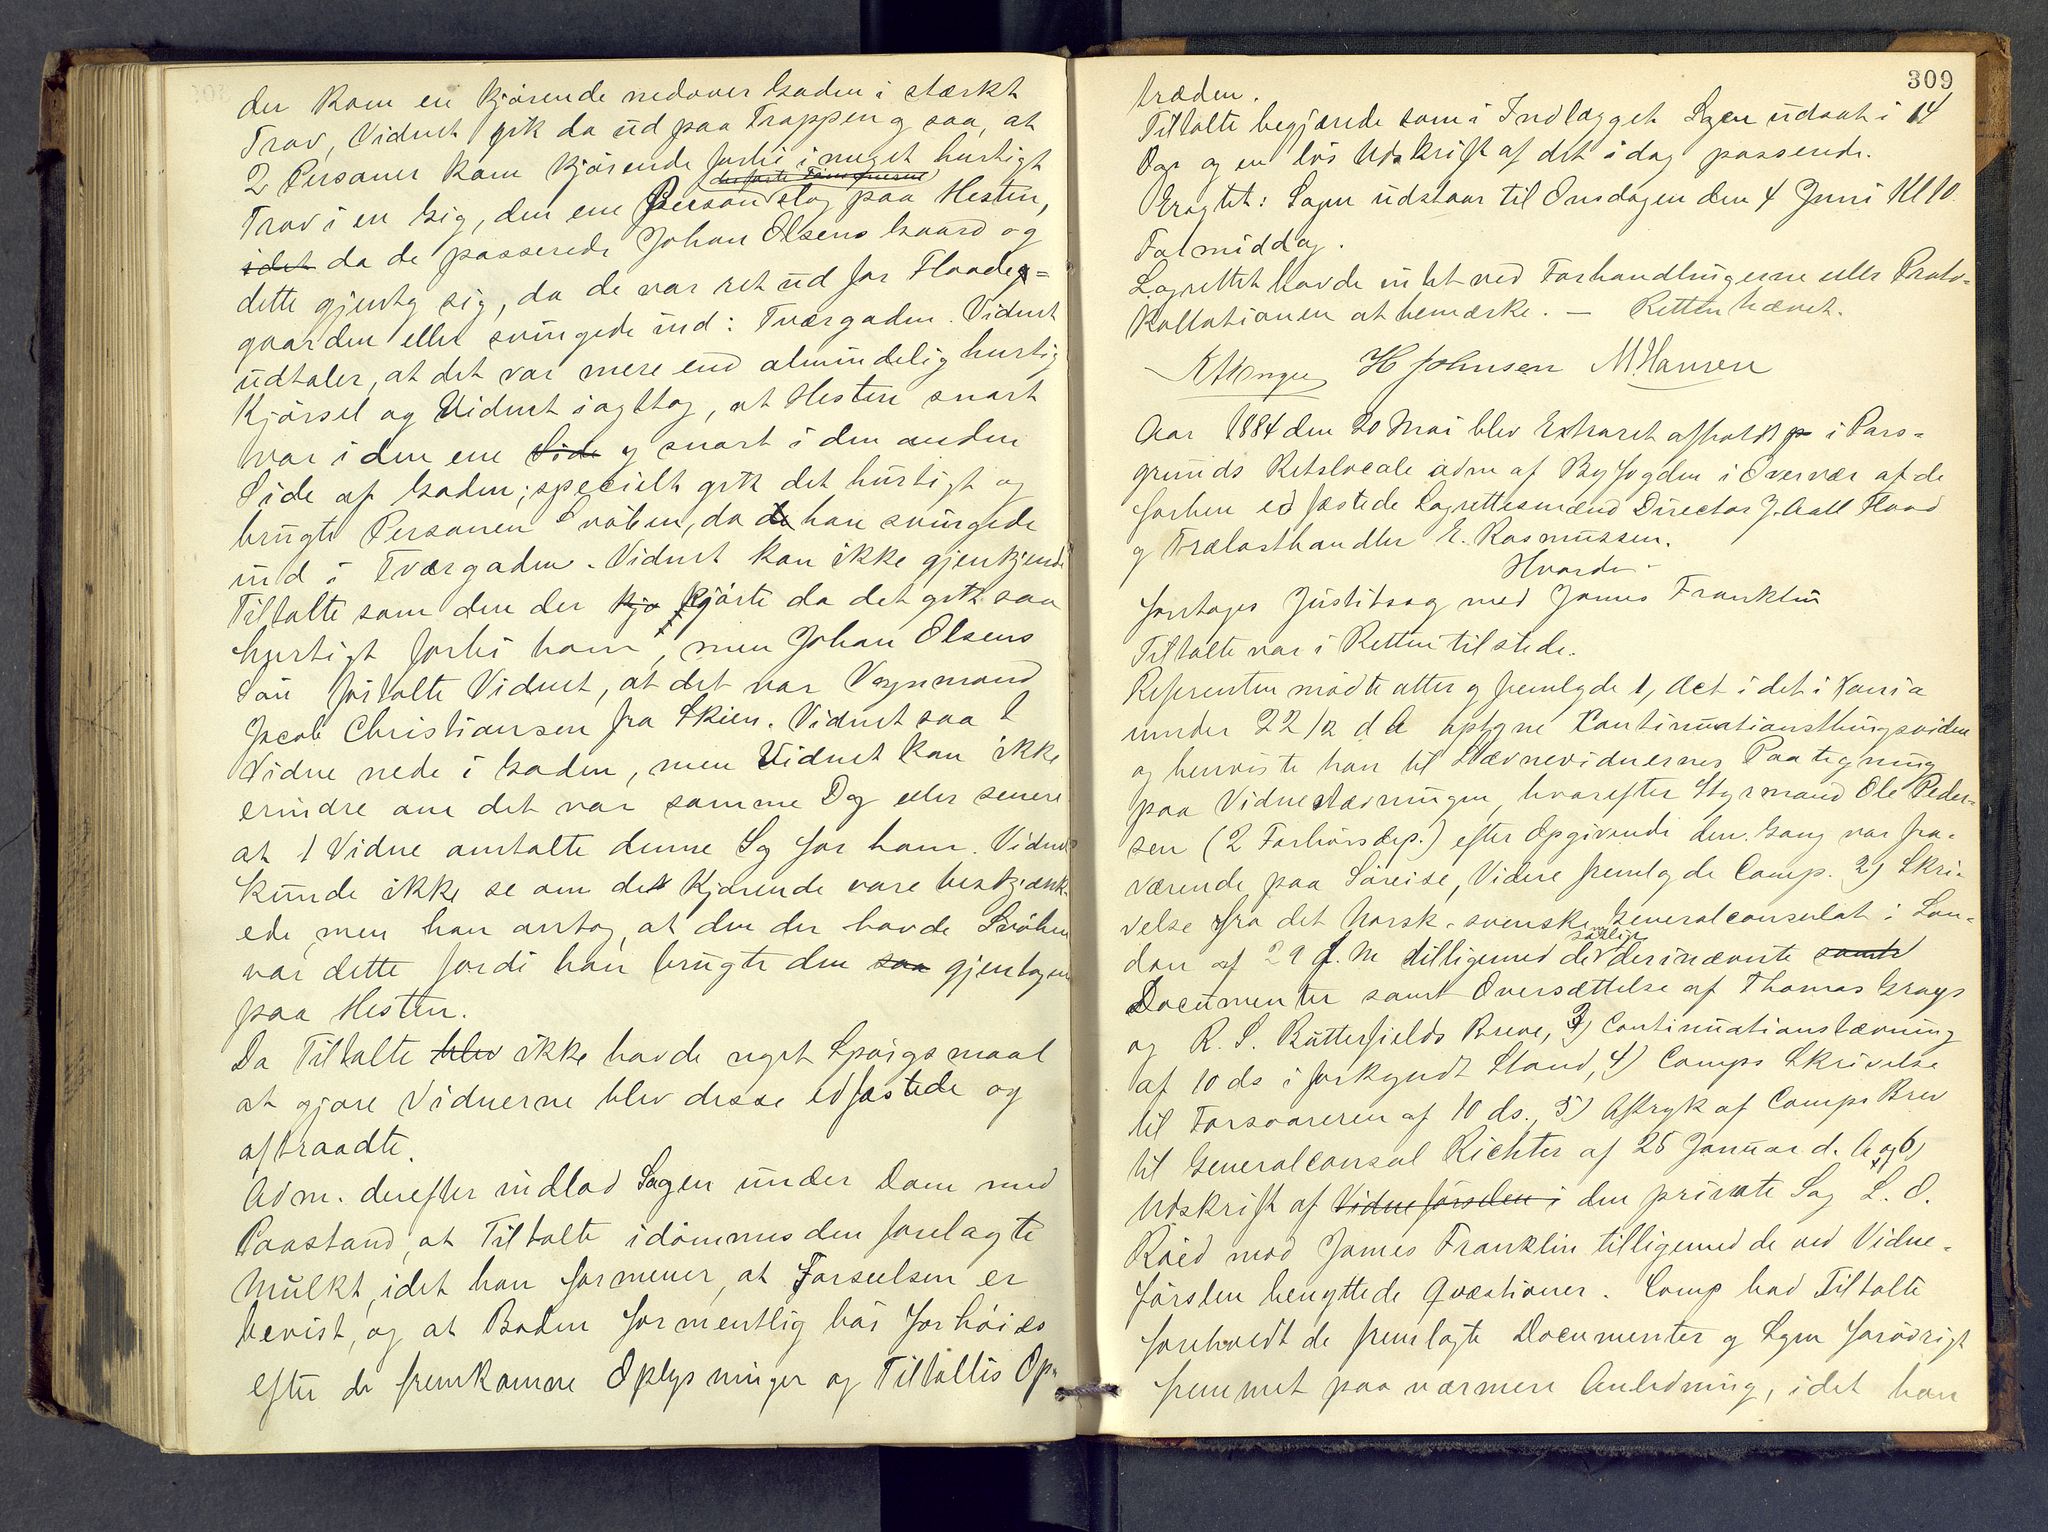 der kom en kjørende nedover Gaden i stærkt
Trav, Vidnet gik da ud paa Trappen og saa, at
2 Personer kom kjørende forbi i meget hurtigt
der førte Tømmerne
Trav i en Gig, den ene Person slog paa Hesten,
idet da de passerede Johan Olsens Gaard og
dette gjentog sig, da de var ret ud for Floode-
gaarden eller svingede ind i Tværgaden. Vidnet
udtaler, at det var mere end almindelig hurtig
Kjørsel og Vidnet iagttog, at Hesten snart
var i den ene Side og snart i den anden
Side af Gaden; specielt gik det hurtigt og
brugte Personen Svøben, da de han svingede
ind i Tværgaden. Vidnet kan ikke gjenkjende
Tiltalte som den der kjø kjørte da det gik saa
hurtigt forbi ham, men Johan Olsens
Søn fortalte Vidnet, at det var Vognmand
Jacob Christiansen fra Skien. Vidnet saa 1
Vidne nede i Gaden, men Vidnet kan ikke
erindre om det var samme Dag eller senere
at 1 Vidne omtalte denne Sag for ham. Vidnet
kunde ikke se om de Kjørende vare beskjænk-
ede, men han antog, at den der havde Svøben
var dette fordi han brugte den saa gjentagne
paa Hesten.
Da Tiltalte blev ikke havde noget Spørgsmaal
at gjøre Vidnerne blev disse edfæstede og
aftraadte.
Adm. derefter indlod Sagen under Dom med
Paastand, at Tiltalte idømmes den forelagte
Mulkt, idet han formener, at Forseelsen er
bevist, og at Boden formentlig bør forhøies
efter de fremkomne Oplysninger og Tiltaltes Op-
309
træden.
Tiltalte begjærede som i Indlægget Sagen udsat i 14
Dage og en løs Udskrift af det idag passerede.
Eragtet: Sagen udstaar til Onsdagen den 4 Juni Kl 10
Formiddag.
Lagrettet havde intet ved Forhandlingerne eller Proto-
kollationen at bemærke. — Retten hævet.
H Johnsen M. Hansen
Aar 1884 den 20 Mai blev Extraret afholdt p i Pors-
grunds Retslocale adm af Byfogden i Overvær af de
forhen edfæstede Lagrettesmænd Director J. Aall Flood
og Trælasthandler E. Rasmussen.
Hvorda
foretages Justitssag mod James Franklin
Tiltalte var i Retten tilstede.
Referenten mødte atter og fremlagde 1, Act i det i Vansia
under 22/2 d A optagne Continuationsthingsvidne
og henviste han til Stævnevidnernes Paategning
paa Vidnestævningen, hvorefter Styrmand Ole Peder-
sen (2 Forhørsdep.) efter Opgivende den Gang var fra-
værende paa Søreise, Videre fremlagde Comp. 2) Skri-
velse fra det norsk-svenske Generalconsulat i Lon-
særlig
don af 29 f. M tilligemed de deri nævnte samt
Documenter samt Oversættelse af Thomas Grays
og R. S. Butterfields Breve, 3) Continuationstævning
af 10 ds i forkyndt Stand, 4) Comps Skrivelse
til Forsvareren af 10 ds., 5) Aftryk af Comps Brev
til Generalconsul Richter af 25 Januar d. A og 6)
Udskrift af Vidneførselen i den private Sag L. O.
Røed mod James Franklin tilligemed de ved Vidne-
førslen benyttede Qvæstioner. Comp bad Tiltalte
foreholdt de fremlagte Documenter og Sagen forøvrigt
fremmet paa nærmere Anledning, idet han